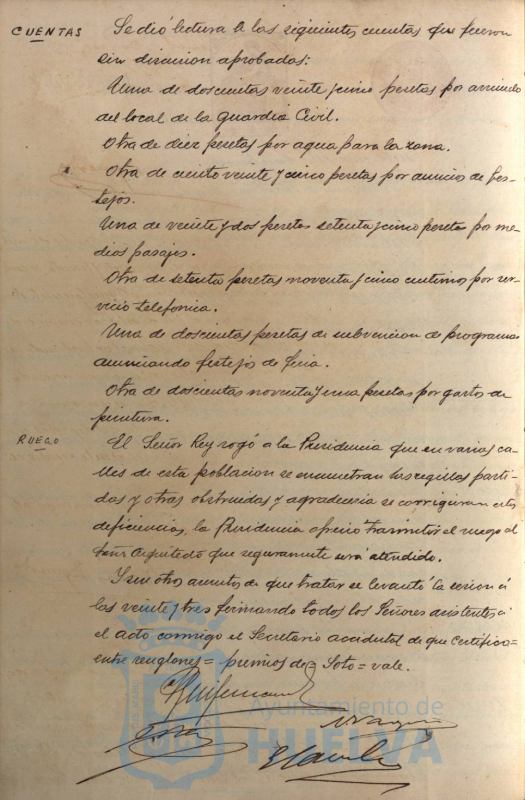 CUENTAS
Se dió lectura a las siguientes cuentas que fueron
sin discusion aprobadas:
Una de doscientas veinte y cinco pesetas por arriendo
del local de la Guardia Civil.
Otra de diez pesetas por agua para la zona.
Otra de ciento veinte y cinco pesetas por anuncio de fes-
tejos.
Una de veinte y dos pesetas setenta y cinco pesetas por me-
dios pasajes.
Otra de setenta pesetas noventa y cinco centimos por ser-
vicio telefonica.
Una de doscientas pesetas de subvencion de programas
anunciando festejos de feria.
Otra de doscientas noventa y una pesetas por gastos de
pintura.
RUEGO
El Señor Rey rogó a la Presidencia que en varias ca-
lles de esta poblacion se encuentran las regillas parti-
das y otras obstruidas y agradeceria se corrigieran estas
deficiencias, la Presidencia ofrecio transmitir el ruego al
Señor Arquitecto que seguramente será atendido.
Y sin otro asuntos de que tratar se levantó la sesion a
las veinte y tres firmando todos los Señores asistentes a
el acto conmigo el Secretario accidental de que certifico=
entre renglones= premios de= Soto= vale.
Ayuntamiento de
HUELVA